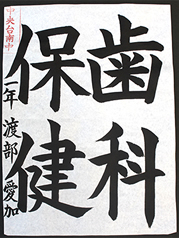 歯科
保健
中央台南中
二年 渡部 愛加